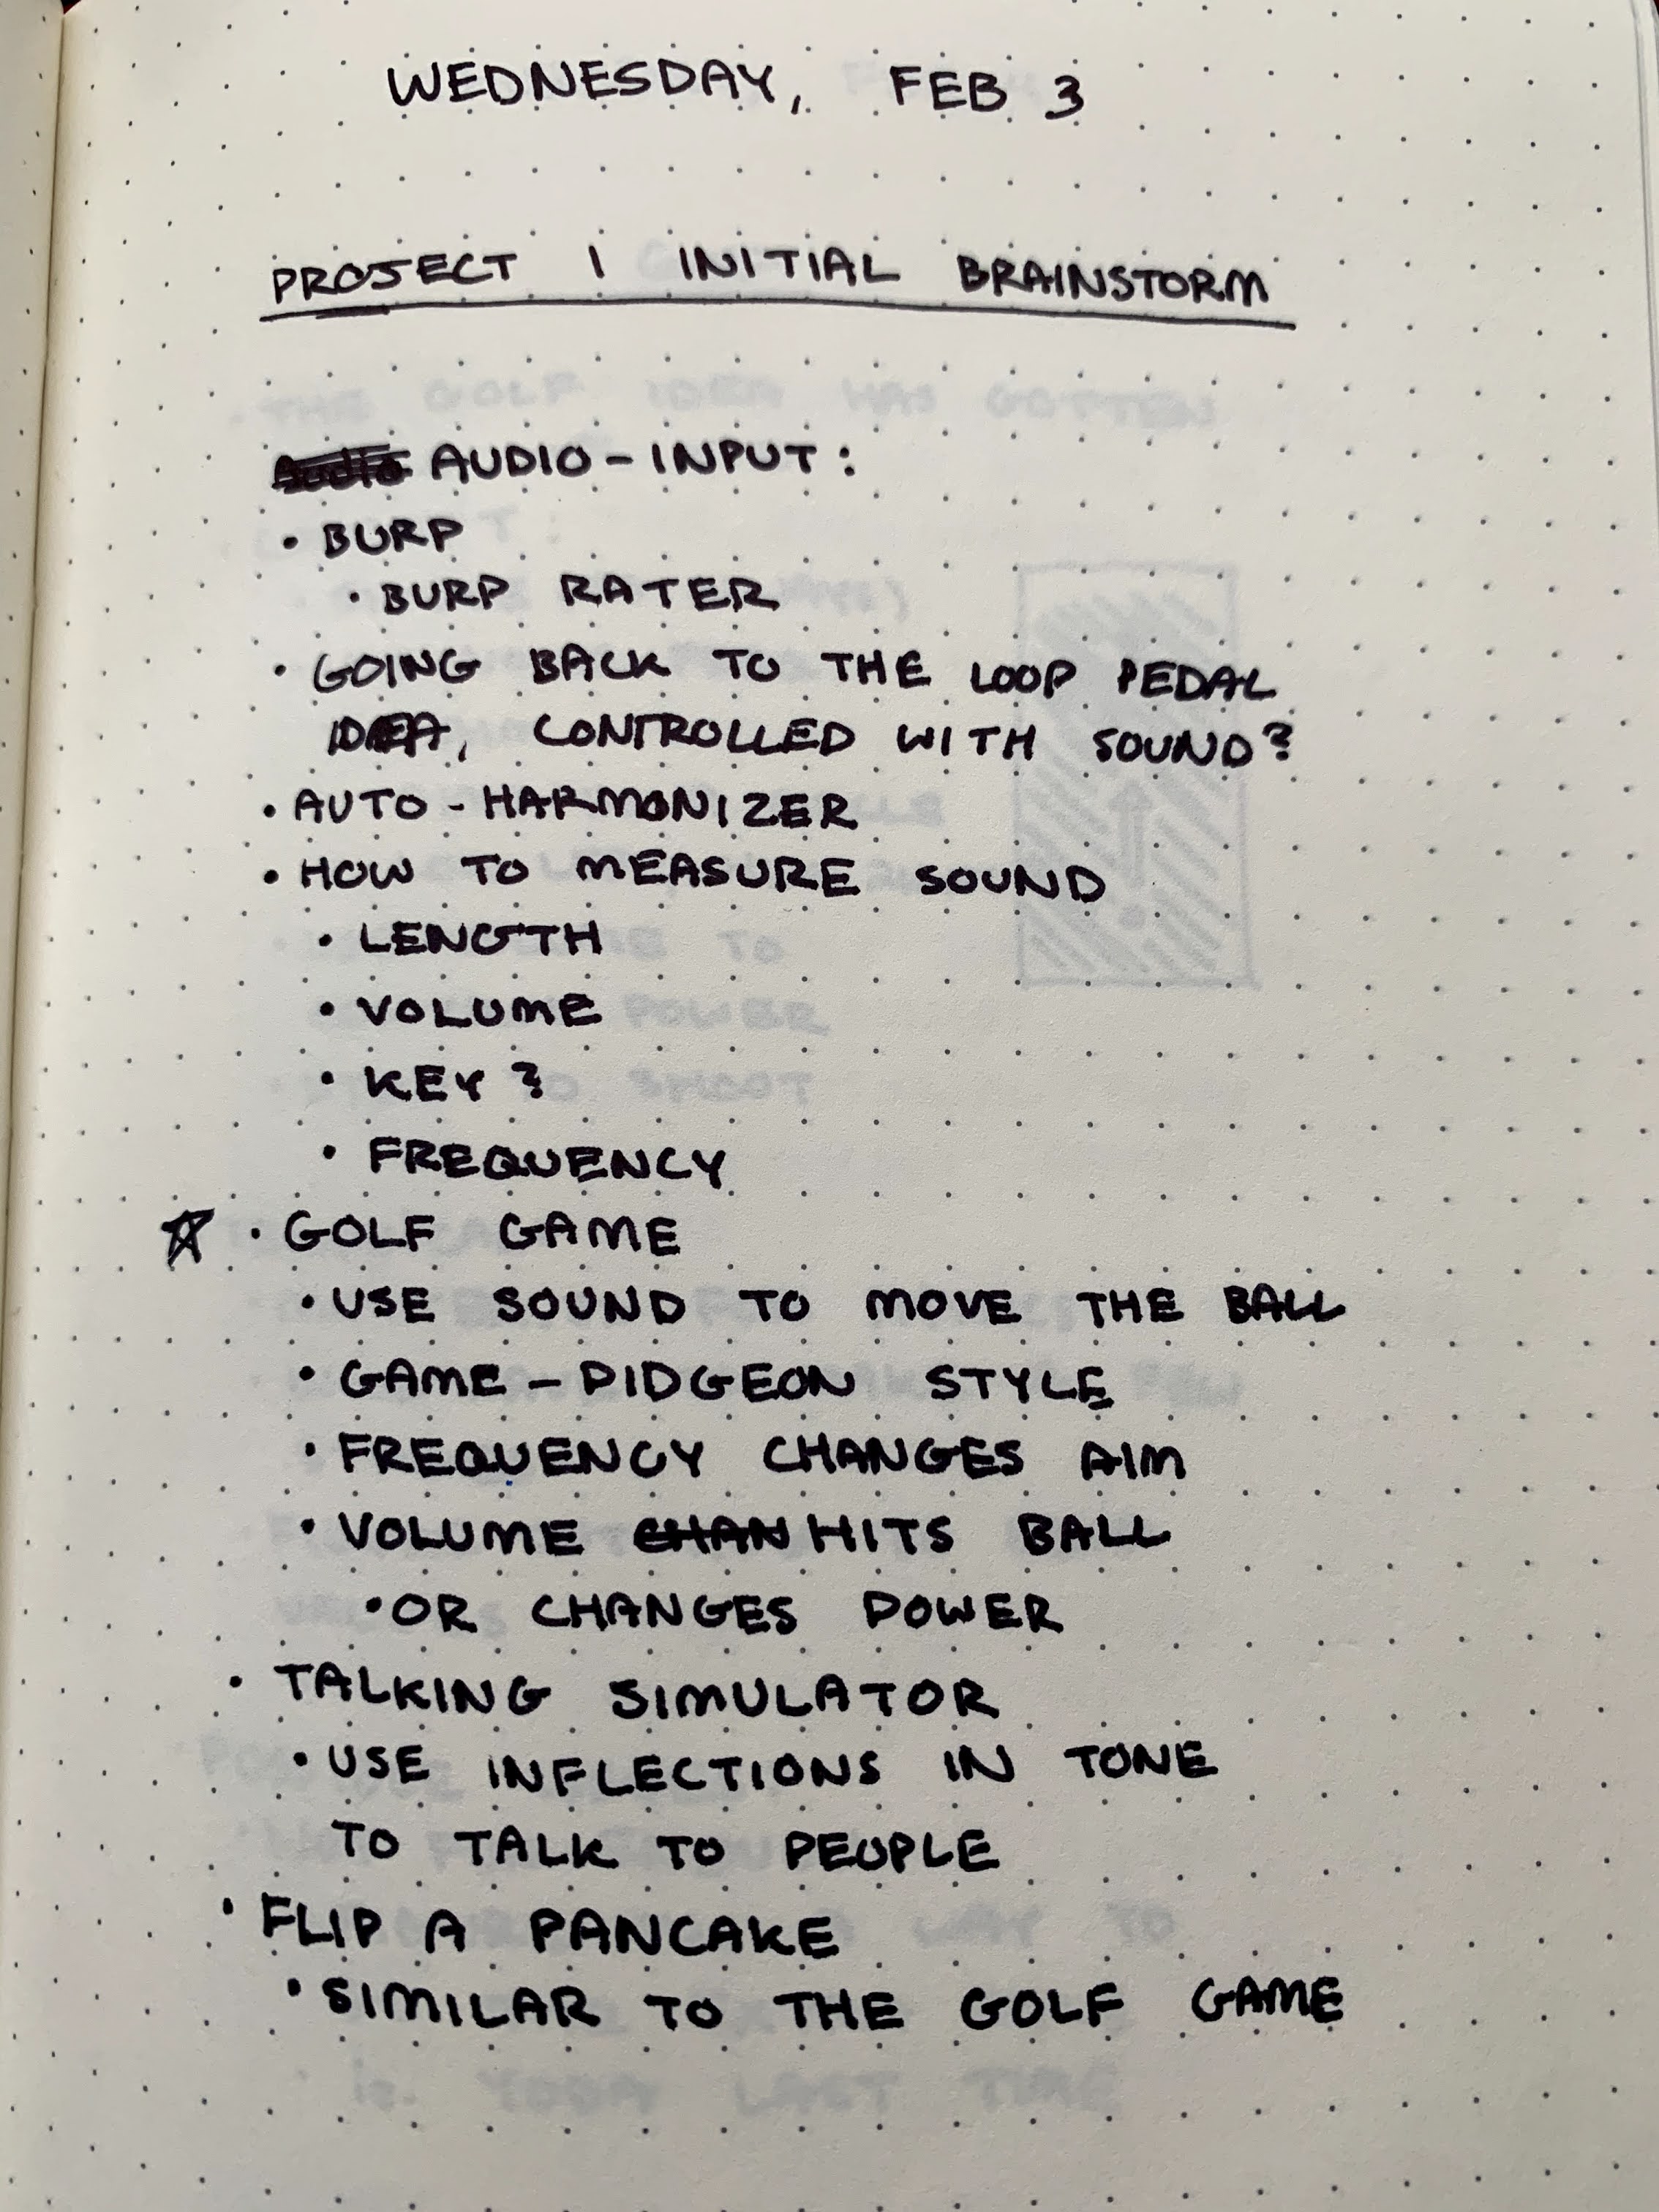 WEDNESDAY, FEB 3
PROJECT 1 INITIAL BRAINSTORM
Audio AUDIO-INPUT:
• BURP
• BURP RATER
• GOING BACK TO THE LOOP PEDAL
IDEA, CONTROLLED WITH SOUND?
• AUTO-HARMONIZER
• HOW TO MEASURE SOUND
• LENGTH
• VOLUME
• KEY?
• FREQUENCY
☆ • GOLF GAME
• USE SOUND TO MOVE THE BALL
• GAME-PIDGEON STYLE
• FREQUENCY CHANGES AIM
• VOLUME CHAN HITS BALL
• OR CHANGES POWER
• TALKING SIMULATOR
• USE INFLECTIONS IN TONE
TO TALK TO PEOPLE
• FLIP A PANCAKE
• SIMILAR TO THE GOLF GAME